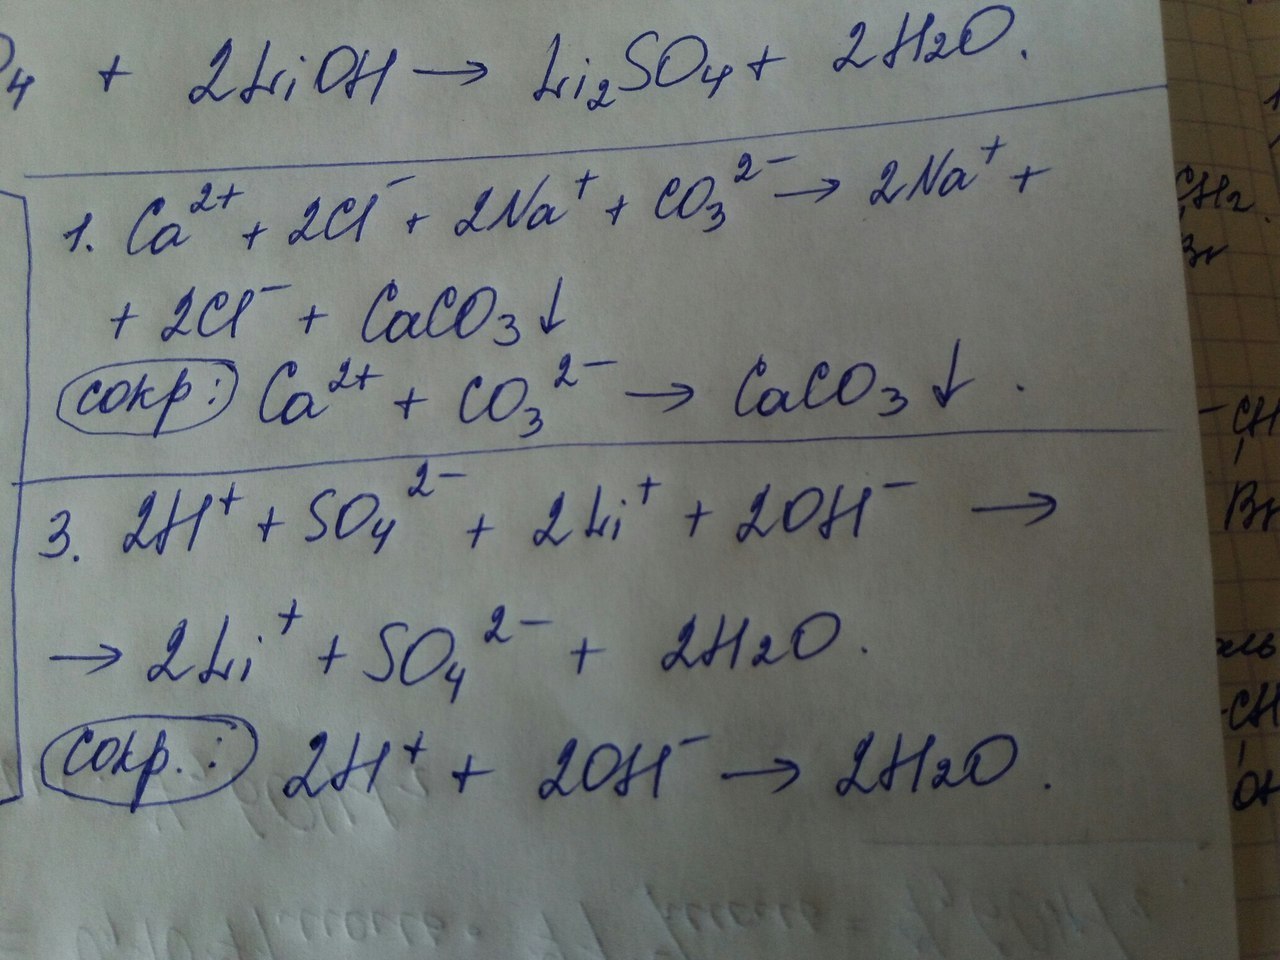 O₄ + 2LiOH → Li₂SO₄ + 2H₂O.
1. Ca²⁺ + 2Cl⁻ + 2Na⁺ + CO₃²⁻ → 2Na⁺ +
+ 2Cl⁻ + CaCO₃↓
сокр: Ca²⁺ + CO₃²⁻ → CaCO₃↓.
3. 2H⁺ + SO₄²⁻ + 2Li⁺ + 2OH⁻ →
→ 2Li⁺ + SO₄²⁻ + 2H₂O.
сокр.: 2H⁺ + 2OH⁻ → 2H₂O.
CH₂
Br
-CH
Br
-CH
OH